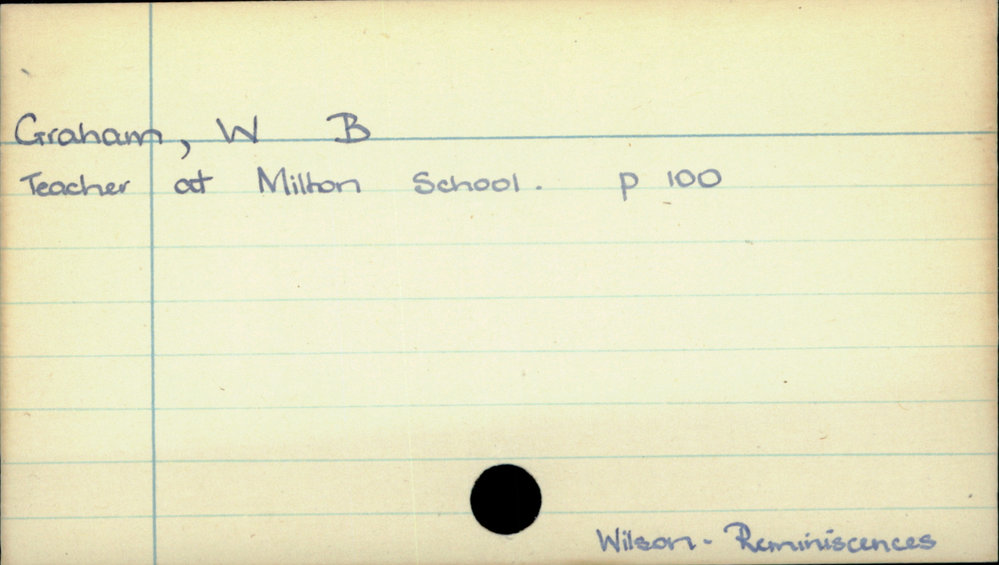 Graham, W B
Teacher at Milton School. p 100
Wilson - Reminiscences